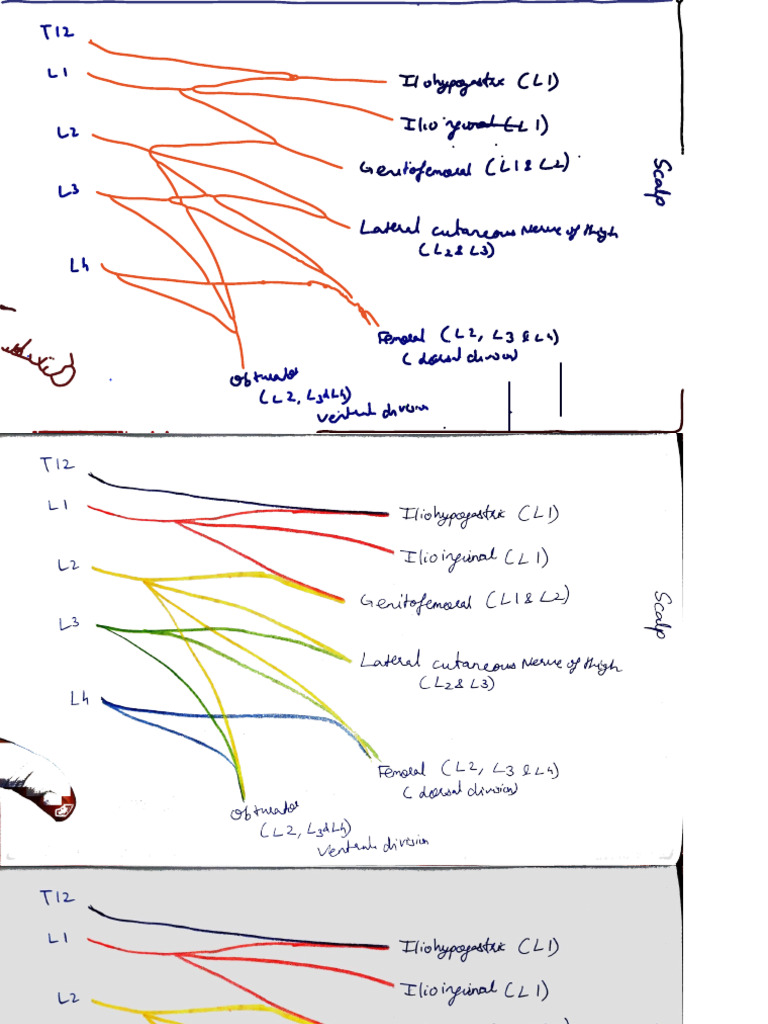 T12
L1
Iliohypogastric (L1)
Ilioinguinal (L1)
L2
Genitofemoral (L1 & L2)
Scalp
L3
Lateral cutaneous Nerve of thigh
(L2 & L3)
L4
Femoral (L2, L3 & L4)
(dorsal division)
Obturator
(L2, L3 & L4)
Ventral division
T12
L1
Iliohypogastric (L1)
Ilioinguinal (L1)
L2
Genitofemoral (L1 & L2)
Scalp
L3
Lateral cutaneous Nerve of thigh
(L2 & L3)
L4
Femoral (L2, L3 & L4)
(dorsal division)
Obturator
(L2, L3 & L4)
Ventral division
T12
L1
Iliohypogastric (L1)
Ilioinguinal (L1)
L2